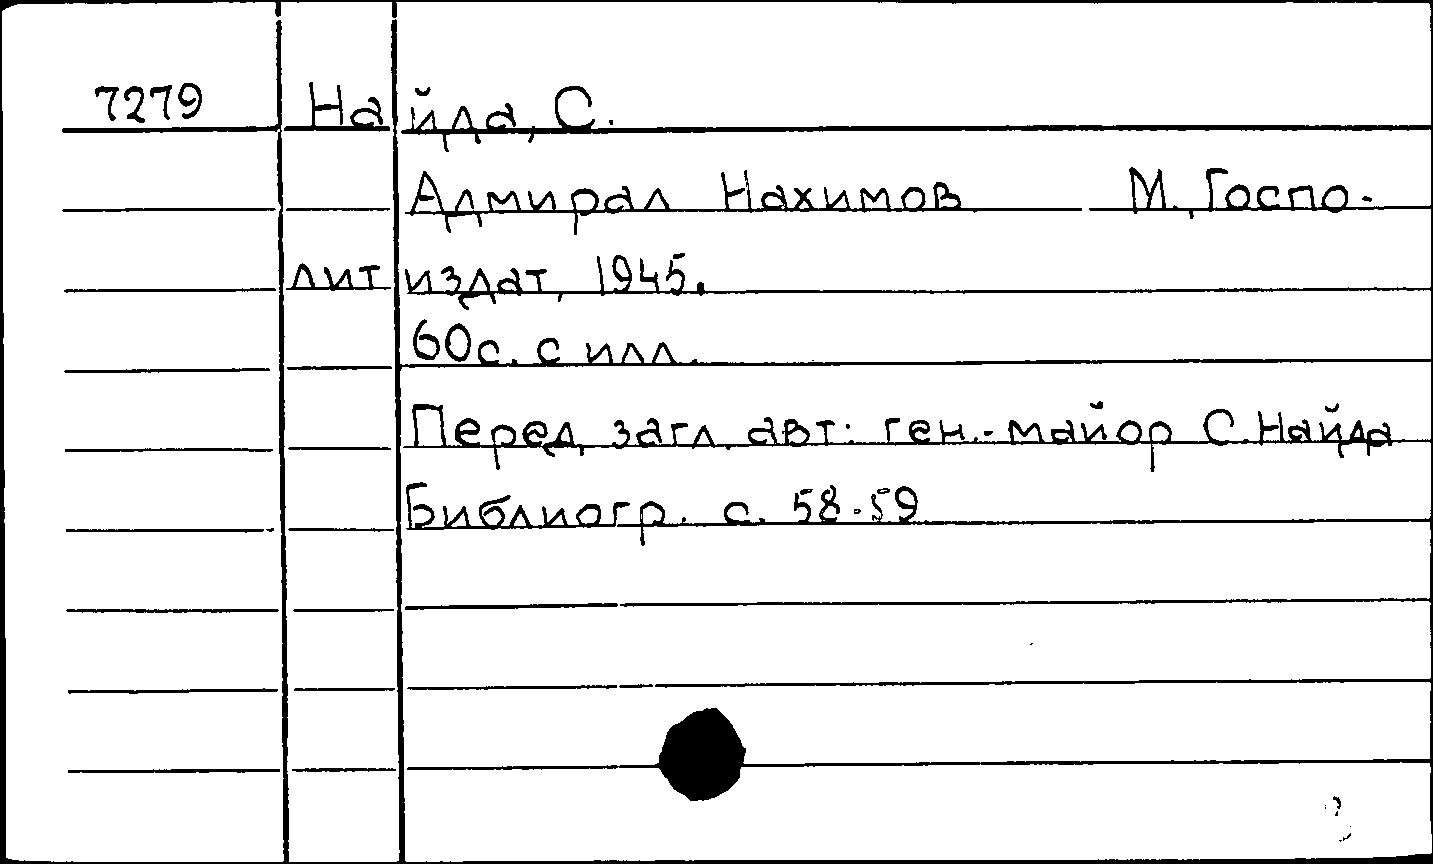 7279 Найда, С.
Адмирал Нахимов М., Госпо-
литиздат, 1945.
60с. с илл.
Перед загл. авт: ген.-майор С. Найда
Библиогр. с. 58-59